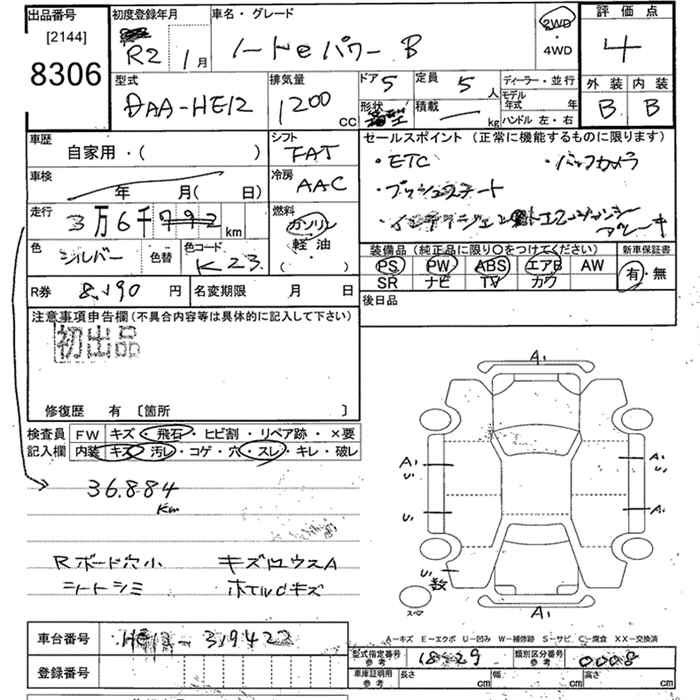 出品番号
[2144]
8306
初度登録年月
R2 1月
車名・グレード
ノートeパワー B
2WD
・
4WD
評価点
4
外装 内装
B B
型式
DAA-HE12
排気量
1200 CC
ドア 5
形状
定員 5 人
積載 kg
ディーラー・並行
モデル年式 年
ハンドル 左・右
車歴
自家用・( )
シフト
FAT
車検
年 月( 日)
冷房
AAC
走行
3万6千792km
燃料
ガソリン
軽油
( )
色
シルバー
色替
色コード
K23
R券 8,190 円
名変期限 月 日
セールスポイント(正常に機能するものに限ります)
・ETC ・バックカメラ
・プッシュスタート
装備品(純正品に限り○をつけてください)
PS PW ABS エアB AW
SR ナビ TV カワ
新車保証書
有・無
後日品
注意事項申告欄(不具合内容等は具体的に記入して下さい)
初出品
修復歴 有 〔箇所 〕
検査員記入欄
FW キズ・飛石・ヒビ割・リペア跡・×要
内装 キズ・汚レ・コゲ・穴・スレ・キレ・破レ
36,884
Km
Rボード穴小 キズU
シートシミ ホイルキズ
A1
A1
U1
U1
A1
U1
数
スペア
A1
A-キズ E-エクボ U-凹み W-補修跡 S-サビ C-腐食 XX-交換済
車台番号 HE12-319422
登録番号
型式指定番号 参考 18529
類別区分番号 参考 0008
車庫証明用 参考
長さ cm
幅 cm
高さ cm